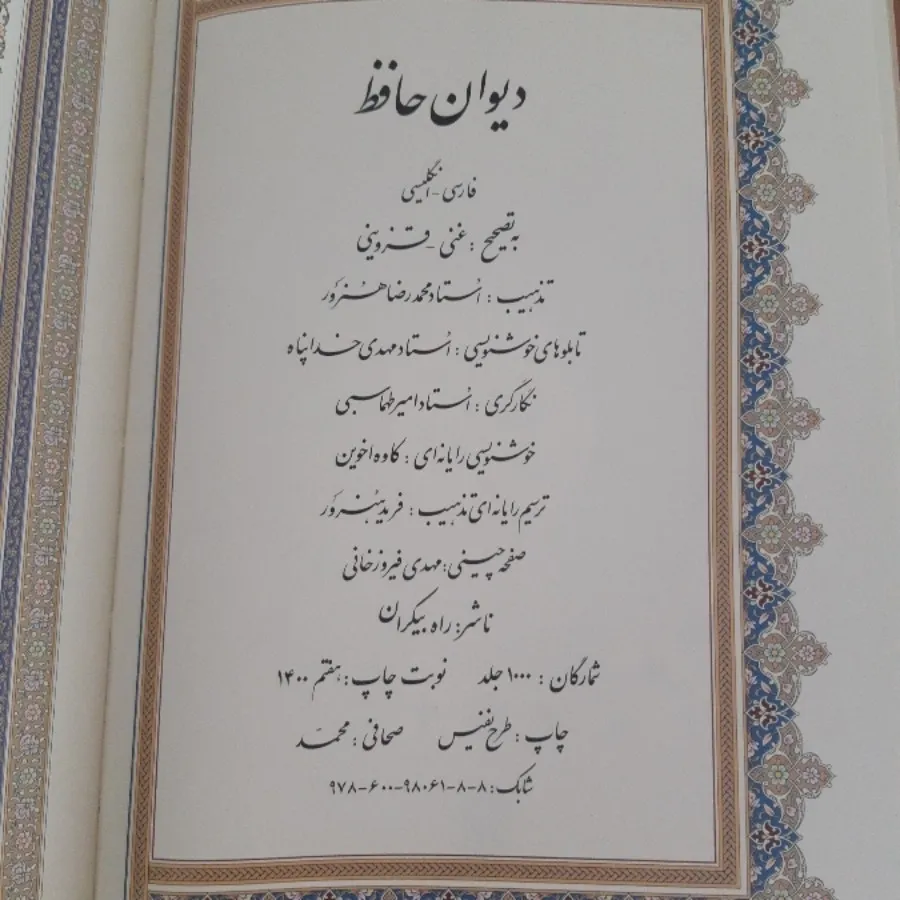 دیوان حافظ
فارسی - انگلیسی
به تصحیح : غنی - قزوینی
تذهیب : اُستاد محمد رضا هُنَروَر
تابلوهای خوشنویسی : اُستاد مهدی خداپناه
نگارگری : اُستاد امیر طهماسبی
خوشنویسی رایانه ای : کاوه اخوین
ترسیم رایانه ای تذهیب : فرید هُنَروَر
صفحه چینی : مهدی فیروزخانی
ناشر : راه بیکران
شمارگان : ۱۰۰۰ جلد نوبت چاپ : هفتم ۱۴۰۰
چاپ : طرح نفیس صحافی : محمّد
شابک : ۸-۸-۹۸۰۶۱-۶۰۰-۹۷۸